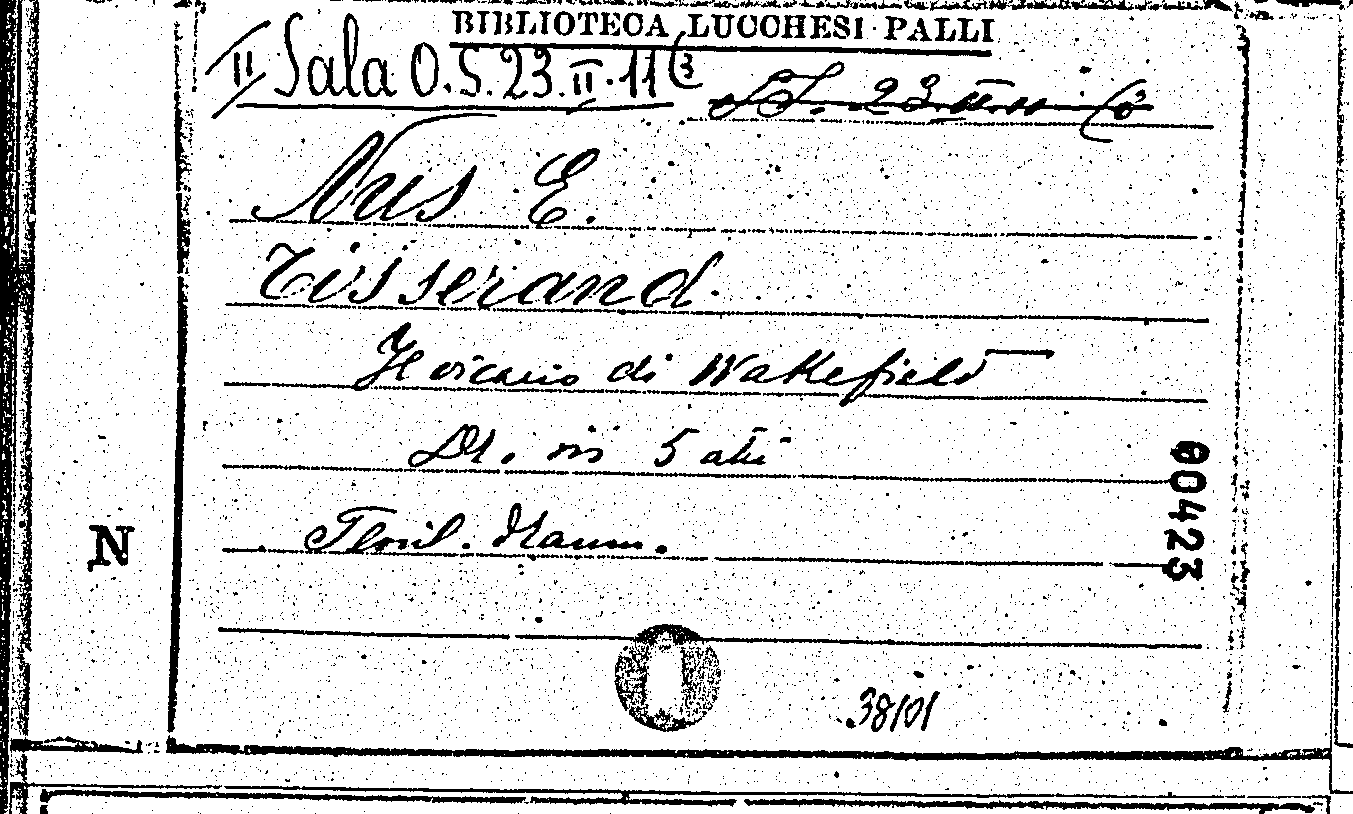 BIBLIOTECA LUCCHESI PALLI
II Sala O.S.23.II.11(3
Nus E.
Tisserand.
Il vicario di Wakefield
Dr. in 5 atti
Floril. Dramm.
N
00423
38101